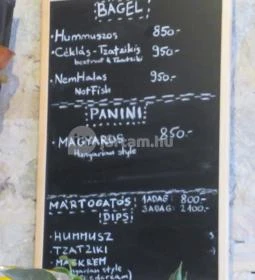 BAGEL
• Hummuszos 850.-
• Céklás-Tzatzikis 950.-
beetroot & Tzatziki
• NemHalas 950.-
NotFish
PANINI
• MAGYAROS 850.-
Hungarian style
MÁRTOGATÓS 1ADAG: 800.-
DIPS 3ADAG: 2100.-
• HUMMUSZ
• TZATZIKI
style